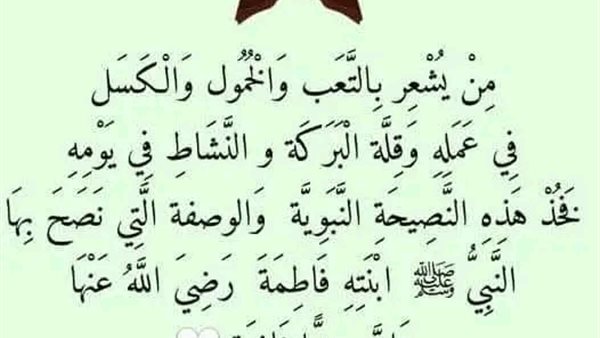 مِنْ يُشْعِر بِالتَّعَب وَالْخُمُول وَالْكَسَل
فِي عَمَلِهِ وَقِلَّة الْبَرَكَة و النَّشَاطِ فِي يَوْمِهِ
فَخُذْ هَذِهِ النَّصِيحَةِ النَّبَوِيَّة وَالوصفة الَّتِي نَصَحَ بِهَا
النَّبِيُّ ﷺ ابْنَتِهِ فَاطِمَةَ رَضِيَ اللَّهُ عَنْهَا